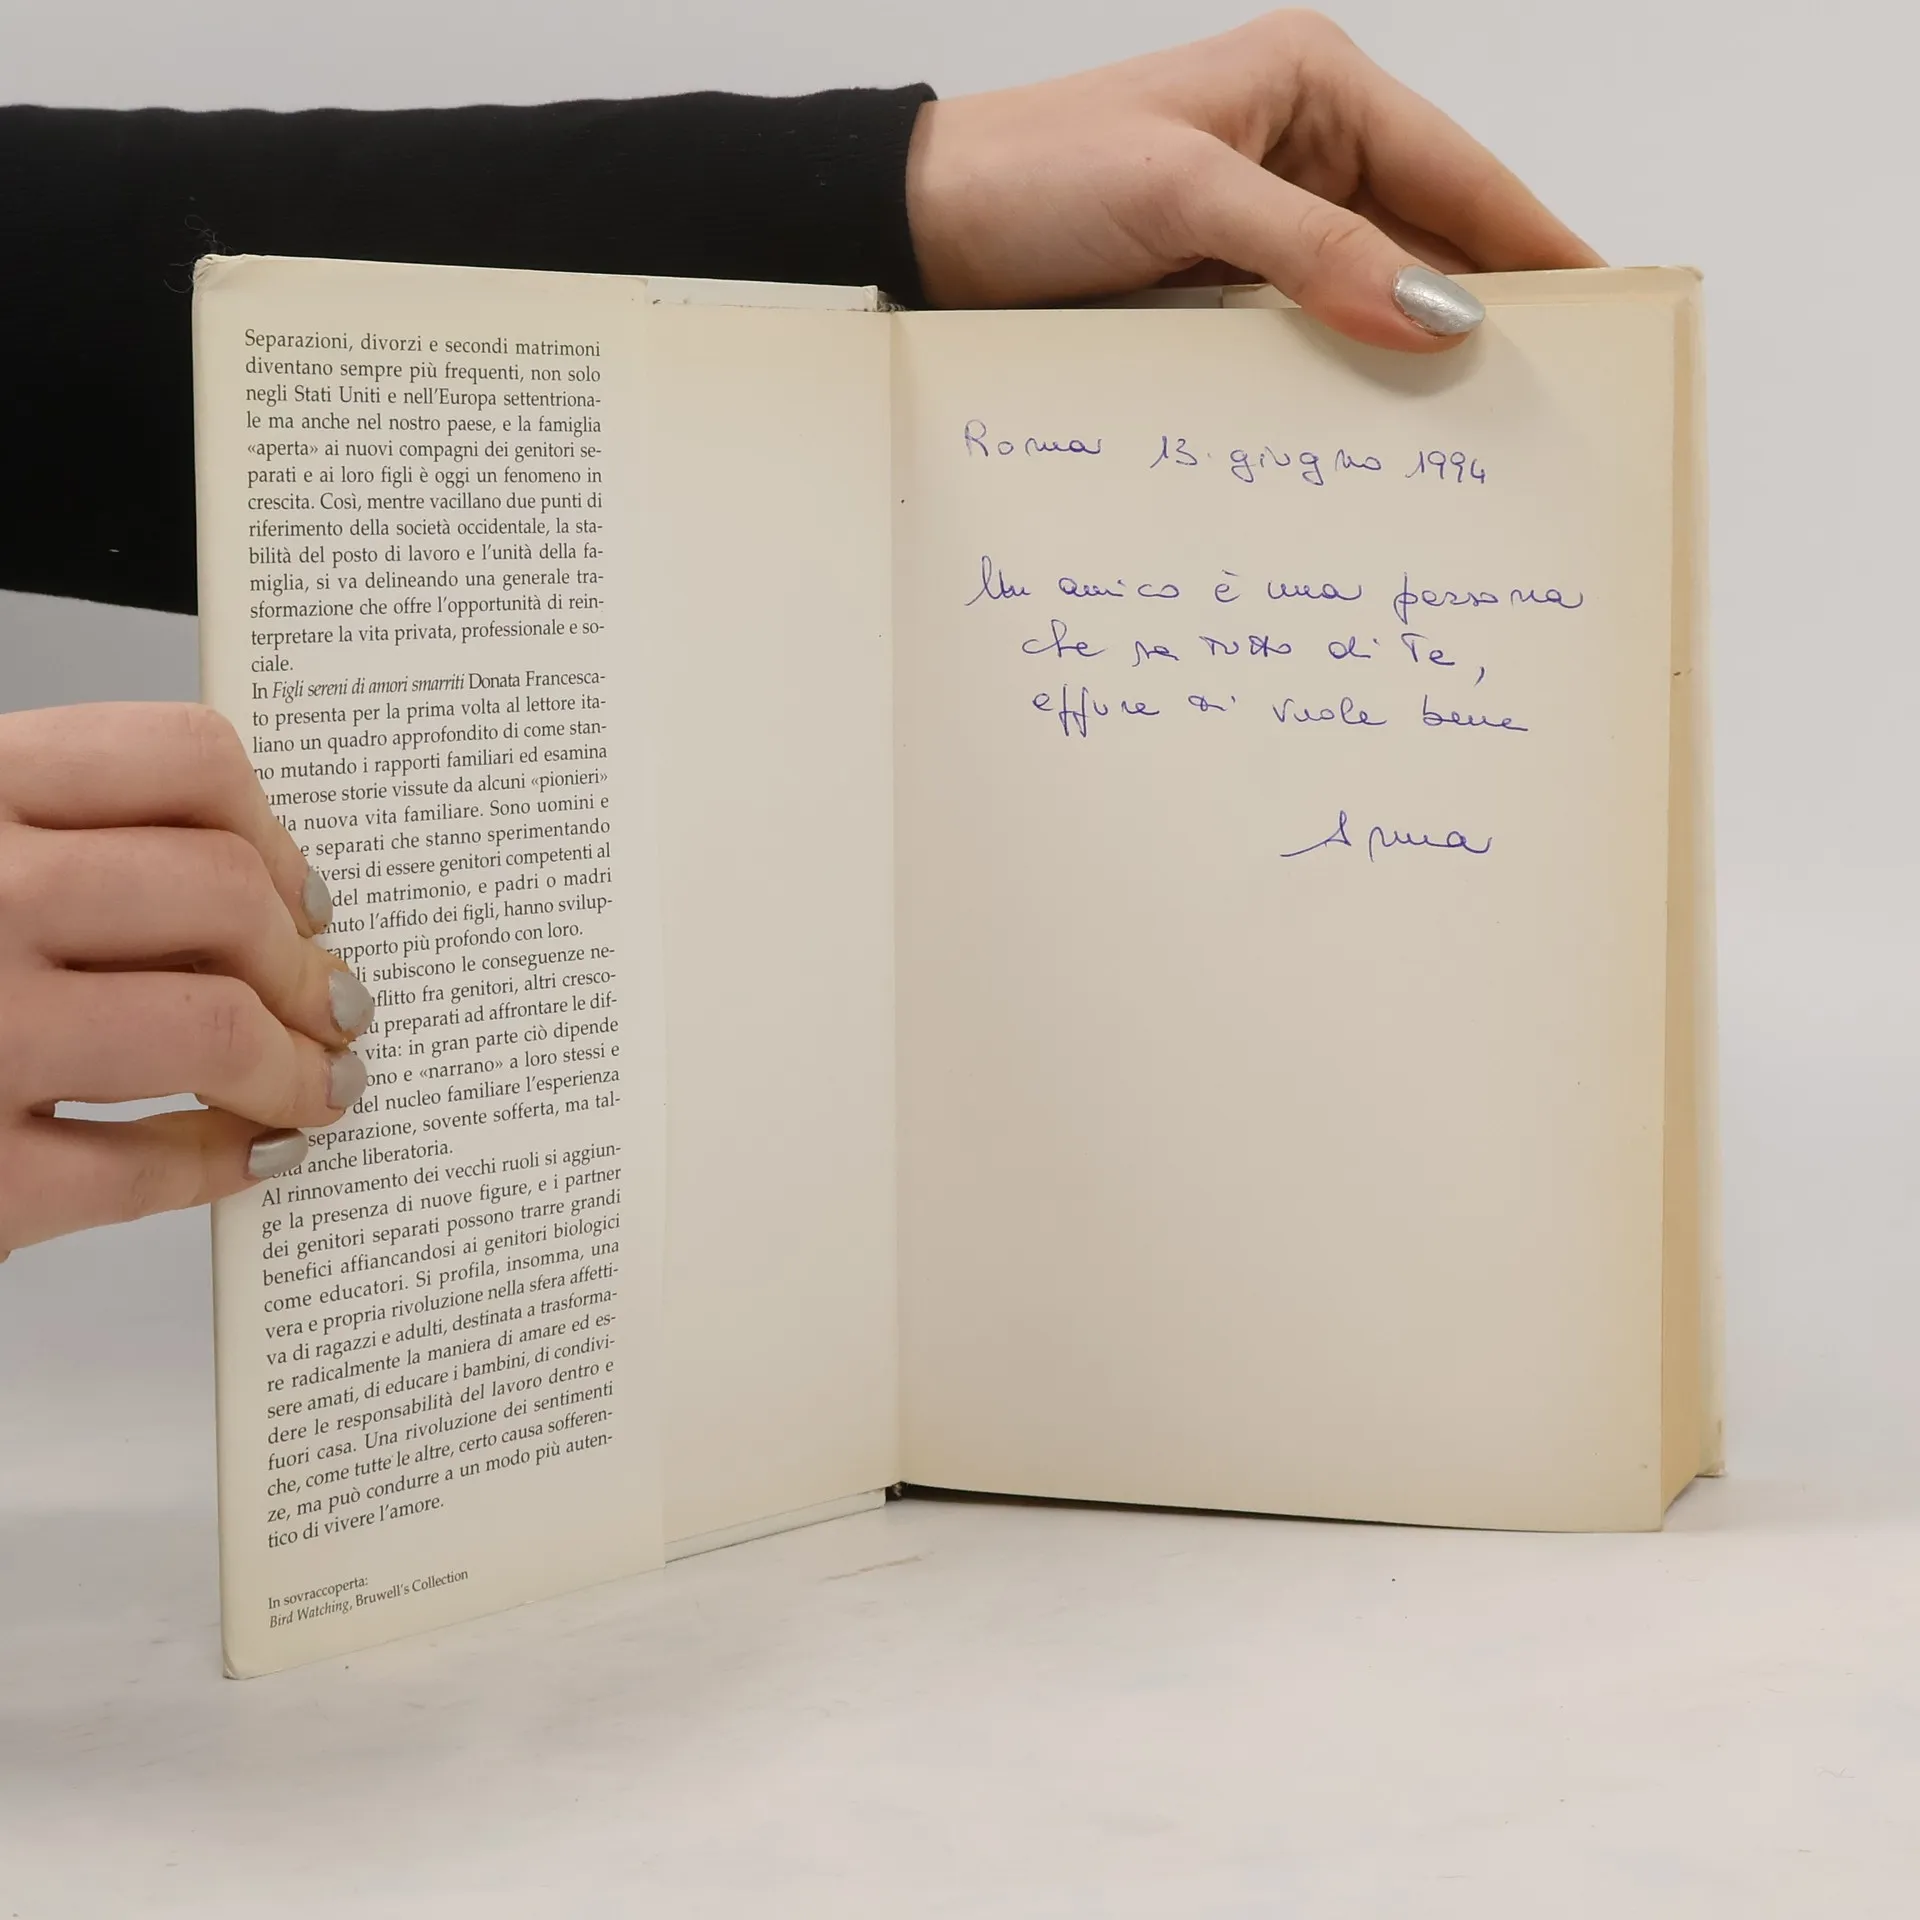 Separazioni, divorzi e secondi matrimoni
diventano sempre più frequenti, non solo
negli Stati Uniti e nell'Europa settentriona-
le ma anche nel nostro paese, e la famiglia
«aperta» ai nuovi compagni dei genitori se-
parati e ai loro figli è oggi un fenomeno in
crescita. Così, mentre vacillano due punti di
riferimento della società occidentale, la sta-
bilità del posto di lavoro e l'unità della fa-
miglia, si va delineando una generale tra-
sformazione che offre l'opportunità di rein-
terpretare la vita privata, professionale e so-
ciale.
In Figli sereni di amori smarriti Donata Francesca-
to presenta per la prima volta al lettore ita-
liano un quadro approfondito di come stan-
no mutando i rapporti familiari ed esamina
umerose storie vissute da alcuni «pionieri»
lla nuova vita familiare. Sono uomini e
e separati che stanno sperimentando
iversi di essere genitori competenti al
del matrimonio, e padri o madri
nuto l'affido dei figli, hanno svilup-
rapporto più profondo con loro.
li subiscono le conseguenze ne-
nflitto fra genitori, altri cresco-
iù preparati ad affrontare le dif-
vita: in gran parte ciò dipende
ono e «narrano» a loro stessi e
del nucleo familiare l'esperienza
separazione, sovente sofferta, ma tal-
anche liberatoria.
Al rinnovamento dei vecchi ruoli si aggiun-
ge la presenza di nuove figure, e i partner
dei genitori separati possono trarre grandi
benefici affiancandosi ai genitori biologici
come educatori. Si profila, insomma, una
vera e propria rivoluzione nella sfera affetti-
va di ragazzi e adulti, destinata a trasforma-
re radicalmente la maniera di amare ed es-
sere amati, di educare i bambini, di condivi-
dere le responsabilità del lavoro dentro e
fuori casa. Una rivoluzione dei sentimenti
che, come tutte le altre, certo causa sofferen-
ze, ma può condurre a un modo più auten-
tico di vivere l'amore.
In sovraccoperta:
Bird Watching, Bruwell's Collection
Roma 13 giugno 1994
Un amico è una persona
che sa tutto di Te,
eppure ti vuole bene
Anna